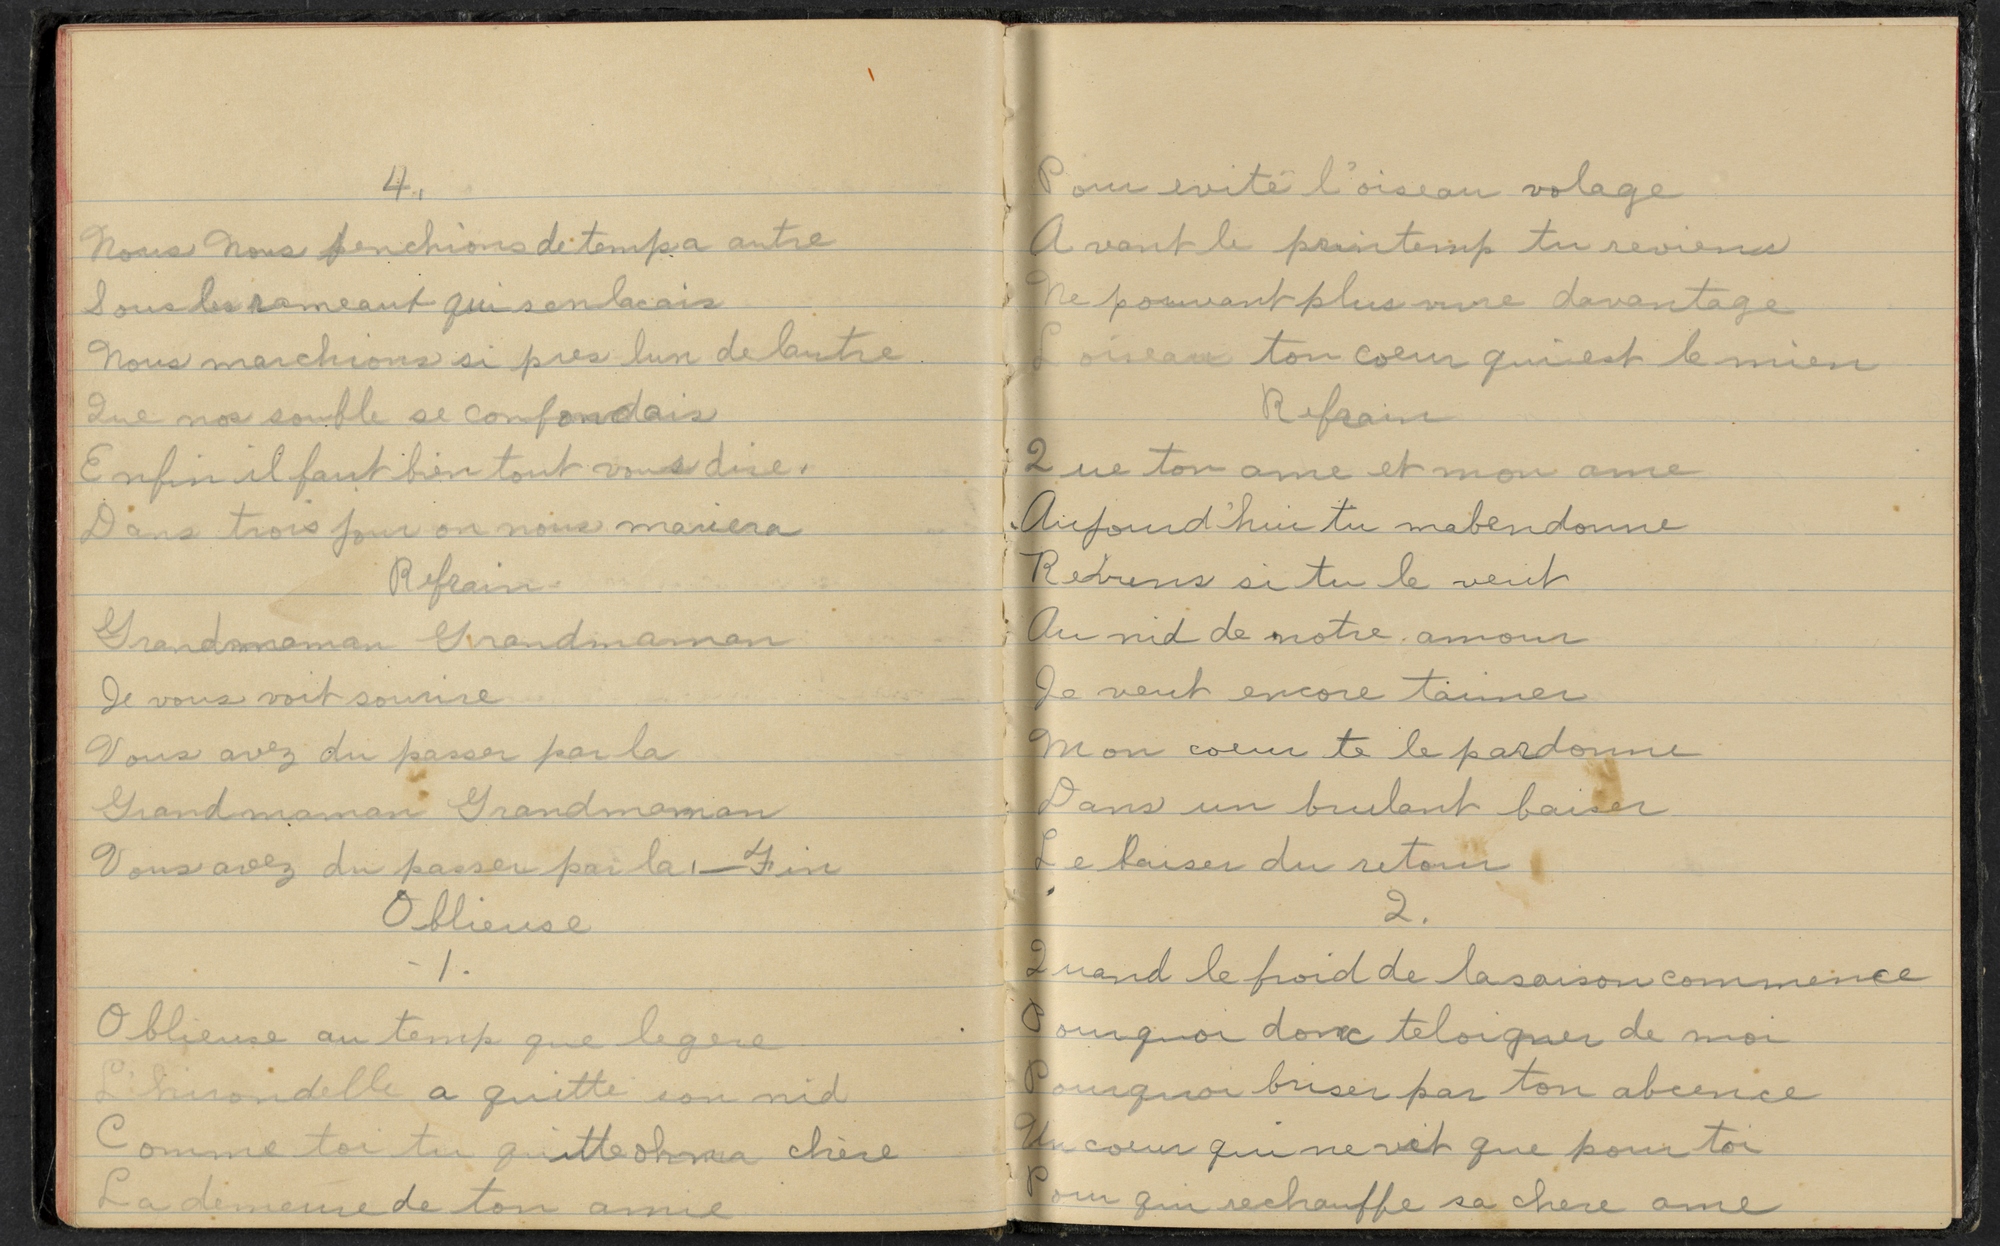 4.
Nous Nous penchions de temp a autre
Sous les rameaut qui senlacais
Nous marchions si pres lun de lautre
Que nos souble se confondais
Enfin il faut bien tout vous dire.
Dans trois jour on nous mariera
Refrain
Grandmaman Grandmaman
Je vous voit sourire
Vous avez du passer par la
Grandmaman Grandmaman
Vous avez du passer par la, — Fin
Oblieuse
- 1.
Oblieuse au temp que legere
L'hirondelle a quitte son nid
Comme toi tu quitte oh ma chère
La demeure de ton amie
Pour evité l'oiseau volage
Avant le printemp tu reviens
Ne pouvant plus vivre davantage
Loiseau ton coeur qui est le mien
Refrain
Que ton ame et mon ame
Aujourd'hui tu mabendonne
Reviens si tu le veut
Au nid de notre amour
Je veut encore taimer
Mon coeur te le pardonne
Dans un brulant baiser
Le baiser du retour
2.
Quand le froid de la saison commence
Pourquoi donc teloigner de moi
Pourquoi briser par ton abcence
Un coeur qui ne vit que pour toi
Pour qui rechauffe sa chere ame